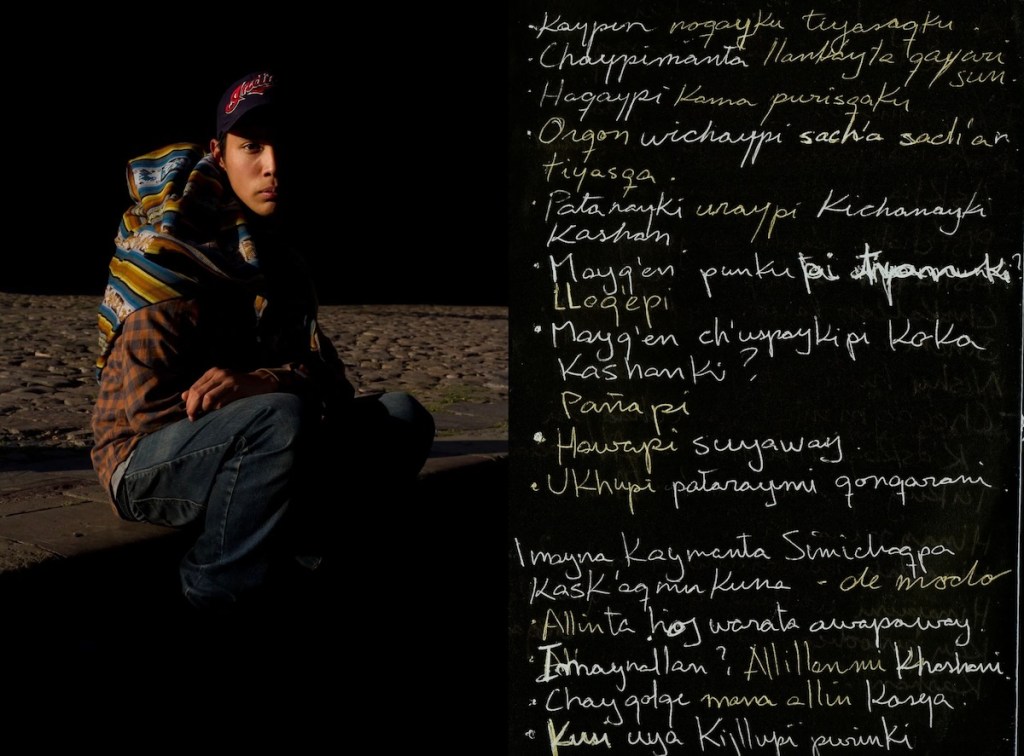 Indians
· Kaypin noqayku tiyasaqku.
· Chaypimanta llankayta qayari
sun.
· Haqaypi Kama purisqaku
· Orqon wichaypi sach'a sach'an
tiyasqa.
· Patanayki uraypi Kichanayki
Kashan
· Mayq'en punku pi tiyananki?
LLoq'epi
· Mayq'en ch'uspaykipi KoKa
Kashanki?
Pañapi
· Hawapi suyaway.
· UKhupi pataraymi qonqarani.
Imayna Kaymanta Simichaqpa
KasK'aqninKuna - de modo
· Allinta hoj warata awapaway.
· Imaynallan? Allillanmi Khashani.
· Chay qolqe mana allin Kasqa.
· Kusi uya Killupi purinki